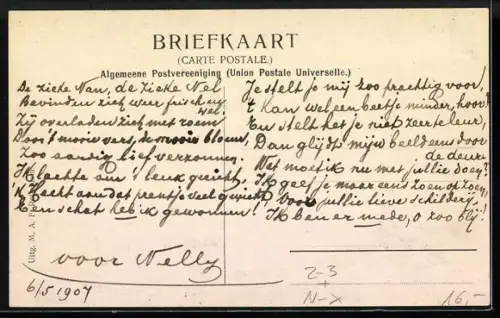 BRIEFKAART
(CARTE POSTALE.)
Algemeene Postvereeniging (Union Postale Universelle.)
De zieke Nan, de zieke Nel
Bevinden zich weer frisch en wel.
Zij overladen zich met roem
Door 't mooie vers, de mooie bloem,
Zoo aardig lief verzonnen.
'k Lachte om 't leuk gezicht,
'k Hecht aan dat prentje veel gewicht,
Een schat heb ik gewonnen!
Je stelt je mij zoo prachtig voor,
't kan wel een beetje minder, hoor!
En stelt het je niet zeer teleur,
Dan glijdt mijn beeld eens door de deur.
Wat moet ik nu met jullie doen?
Ik geef je maar eens zoen op zoen,
Voor jullie lieve schilderij,
Ik ben er mede, o zoo blij!
voor Nelly
6/5 1907
Uitg. M. A.
2-3
N-X
16,-